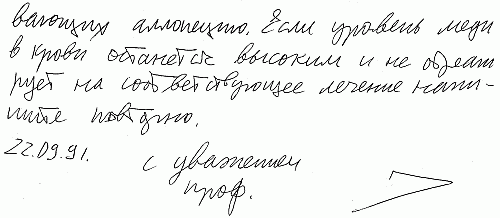 вающих аллопецию. Если уровень меди
в крови останется высоким и не отреаги
рует на соответствующее лечение напи-
шите повторно.
22.09.91.
с уважением
проф.